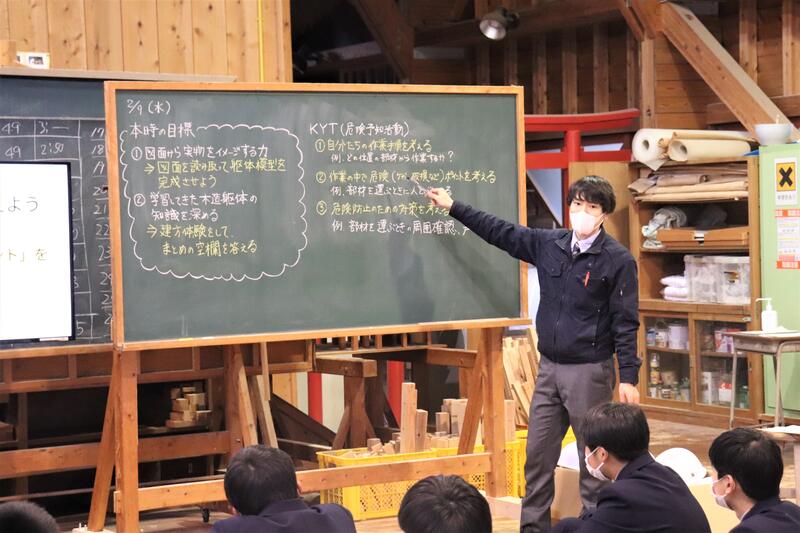 2/9 (水)
本時の目標
① 図面から実物をイメージする力
⇒ 図面を読み取って躯体模型を
完成させよう
② 学習してきた木造躯体の
知識を深める
⇒ 建方体験をして、
まとめの空欄を答える
KYT(危険予知活動)
① 自分たちの作業手順を考える
例、どの位置の部材から作業するか?
② 作業の中で危険(ケガ、破損など)ポイントを考える
例、部材を運ぶときに人と
③ 危険防止のための対策を考える
例、部材を運ぶときの周囲確認、
よう
ント」を
49
49
2:50